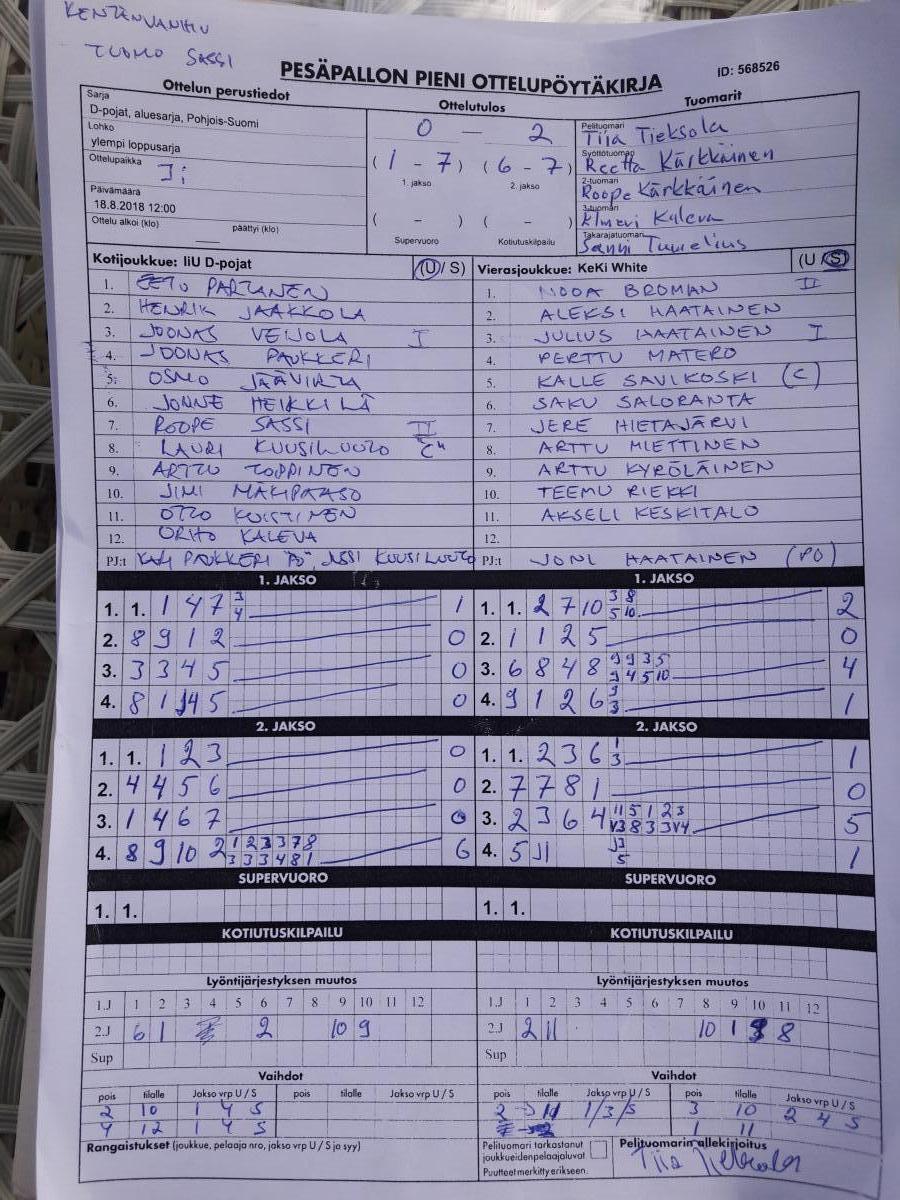 KENTÄNVANHIN
TUOMO SASSI
PESÄPALLON PIENI OTTELUPÖYTÄKIRJA ID: 568526
Ottelun perustiedot Ottelutulos Tuomarit
Sarja
D-pojat, aluesarja, Pohjois-Suomi
Lohko
ylempi loppusarja
Ottelupaikka Ii
Päivämäärä
18.8.2018 12:00
Ottelu alkoi (klo) päättyi (klo)
0 — 2
(1 - 7) (6 - 7)
1. jakso 2. jakso
( - ) ( - )
Supervuoro Kotiutuskilpailu
Pelituomari
Tiia Tieksola
Syöttötuomari
Reetta Kärkkäinen
2-tuomari
Roope Kärkkäinen
3-tuomari
Elmeri Kaleva
Takarajatuomari
Sanni Tuurelius
Kotijoukkue: IiU D-pojat (U / S) Vierasjoukkue: KeKi White (U / S)
1. EETU PARTANEN 1. NOOA BROMAN II
2. HENRIK JAAKKOLA 2. ALEKSI HAATAINEN
3. JOONAS VEIJOLA I 3. JULIUS HAATAINEN I
4. JOONAS PAUKKERI 4. PERTTU MATERO
5. OSMO 5. KALLE SAVIKOSKI (C)
6. JONNE HEIKKILÄ 6. SAKU SALORANTA
7. ROOPE SASSI II 7. JERE HIETAJÄRVI
8. LAURI KUUSILUOTO "C" 8. ARTTU MIETTINEN
9. ARTTU TOPPINEN 9. ARTTU KYRÖLÄINEN
10. JIMI MÄKIPAASO 10. TEEMU RIEKKI
11. OTTO KOISTINEN 11. AKSELI KESKITALO
12. ORHO KALEVA 12.
PJ:t PAUKKERI "PO", JUSSI KUUSILUOTO PJ:t JONI HAATAINEN (PO)
1. JAKSO 1. JAKSO
1. 1. 1 4 7 3 4 1 1. 1. 2 7 10 3 8 5 10 2
2. 8 9 1 2 0 2. 1 1 2 5 0
3. 3 3 4 5 0 3. 6 8 4 8 9 9 3 5 9 4 5 10 4
4. 8 1 4 5 0 4. 9 1 2 6 9 3 1
2. JAKSO 2. JAKSO
1. 1. 1 2 3 0 1. 1. 2 3 6 1 3 1
2. 4 4 5 6 0 2. 7 7 8 1 0
3. 1 4 6 7 0 3. 2 3 6 4 11 5 1 2 3 V3 8 3 3 V4 5
4. 8 9 10 2 1 2 3 3 7 8 3 3 3 4 8 1 6 4. 5 J1 J3 5 1
SUPERVUORO SUPERVUORO
1. 1. 1. 1.
KOTIUTUSKILPAILU KOTIUTUSKILPAILU
Lyöntijärjestyksen muutos Lyöntijärjestyksen muutos
1.J 1 2 3 4 5 6 7 8 9 10 11 12 1.J 1 2 3 4 5 6 7 8 9 10 11 12
2.J 6 1 2 10 9 2.J 2 11 10 1 9 8
Sup Sup
Vaihdot Vaihdot
pois tilalle Jakso vrp U / S pois tilalle Jakso vrp U / S pois tilalle Jakso vrp U / S pois tilalle Jakso vrp U / S
2 10 1 4 S 2 → 11 1/3/S 3 10 2 4 S
4 12 1 4 S 1 11
Rangaistukset (joukkue, pelaaja nro, jakso vrp U / S ja syy)
Pelituomari tarkastanut
joukkueiden pelaajaluvat
Puutteet merkitty erikseen.
Pelituomarin allekirjoitus
Tiia Tieksola